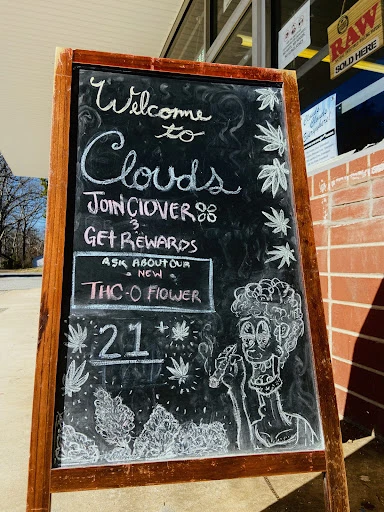 Welcome
to
Clouds
JOIN CLOVER
&
GET REWARDS
ASK ABOUT OUR
NEW
THC-O FLOWER
21+
RAW
SOLD HERE